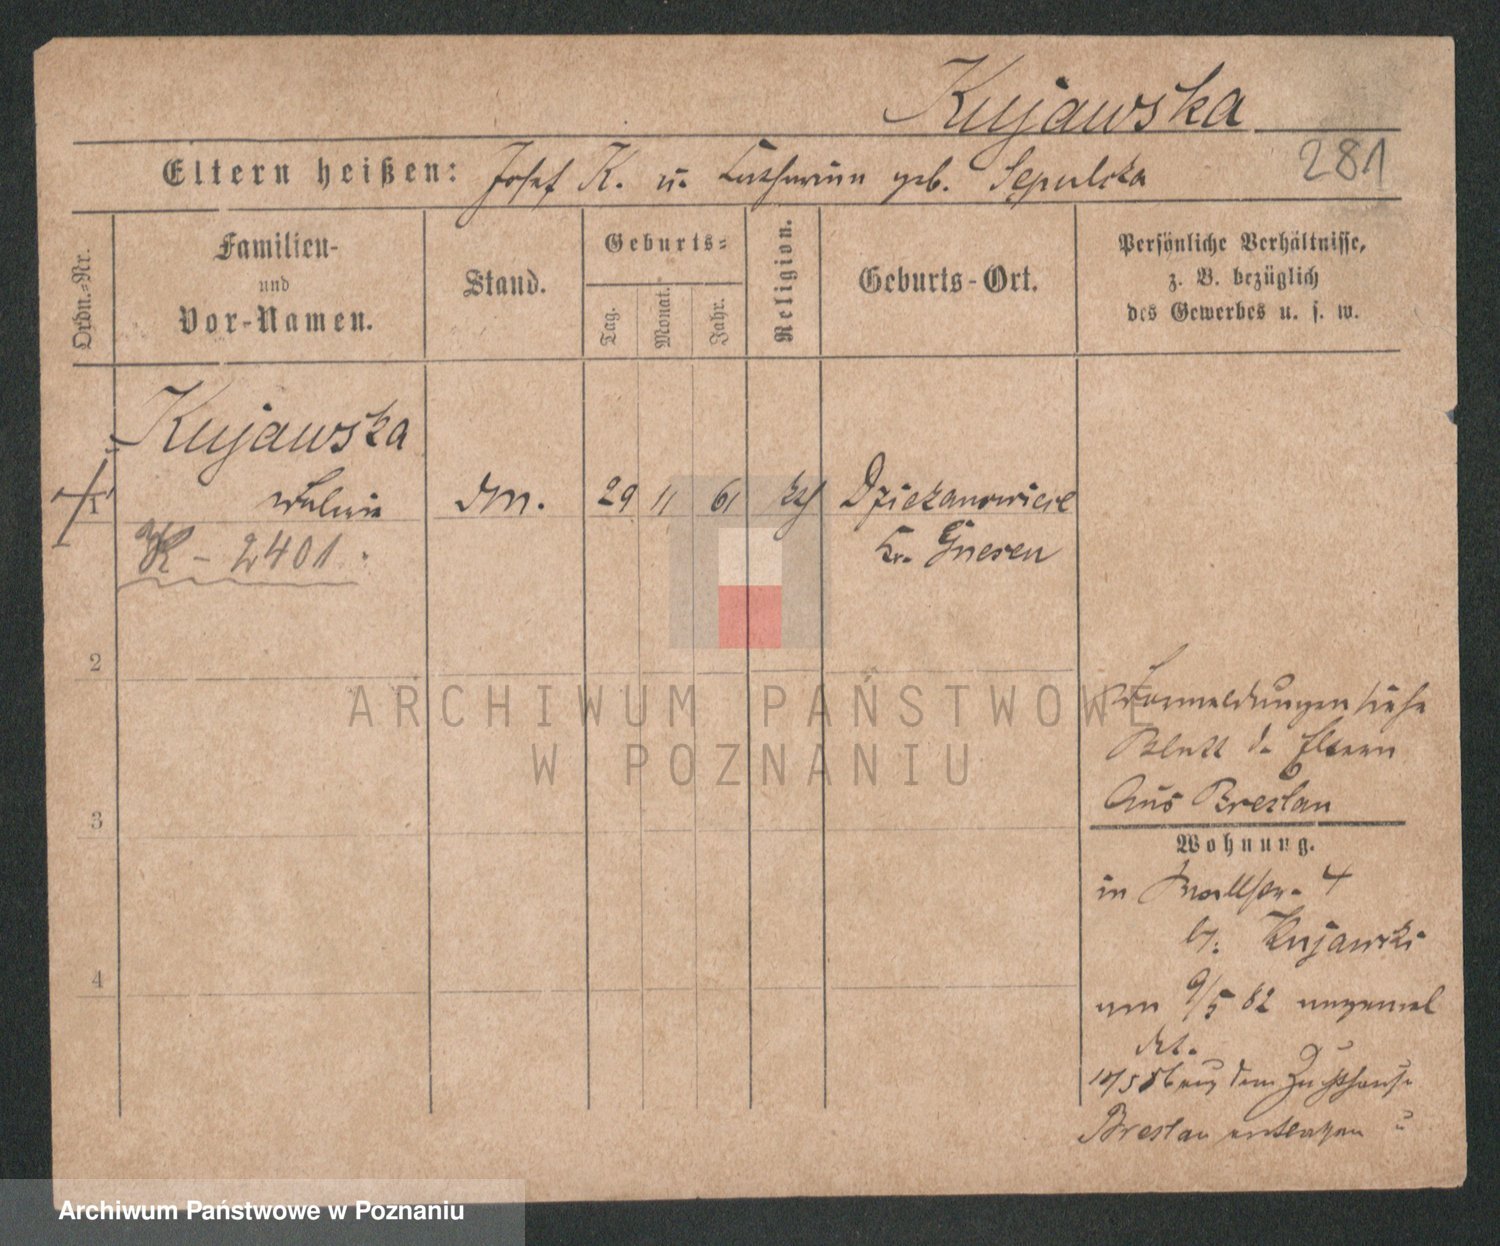 Kujawska
281
Eltern heißen: Josef K. u. Catharina geb. Sepulcka
Ordn.-Nr.
Familien-
und
Vor-Namen.
Stand.
Geburts-
Tag.
Monat.
Jahr.
Religion.
Geburts-Ort.
Persönliche Verhältnisse,
z. B. bezüglich
des Gewerbes u. s. w.
Kujawska
1
29 11 61 kth Dziekanowice
Kr. Gnesen
K - 2401.
2
3
4
Vormeldungen siehe
Blatt d. Eltern
Aus Breslau
Wohnung.
in Wallstr. 4
b. Kujawski
am 9/5 82 angemel
det.
10/5 86 aus dem Zuchthause
Breslau entlassen
ARCHIWUM PAŃSTWOWE
W POZNANIU
Archiwum Państwowe w Poznaniu